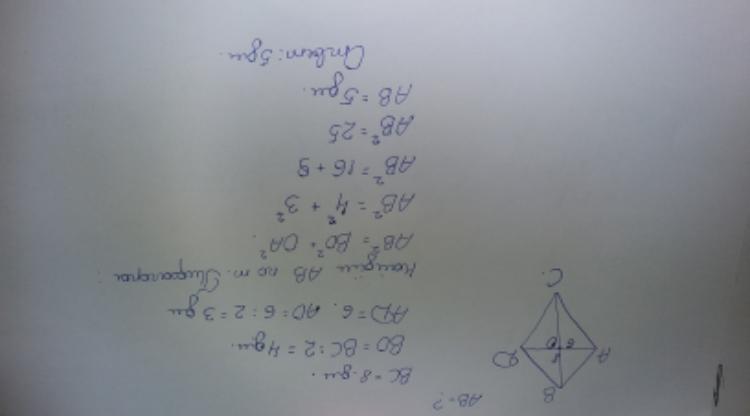 AB = ?
BC = 8 дм.
BO = BC : 2 = 4 дм.
AD = 6. AO = 6 : 2 = 3 дм
Найдём AB по т. Пифагора:
AB² = BO² + OA².
AB² = 4² + 3²
AB² = 16 + 9
AB² = 25
AB = 5 дм.
Ответ: 5 дм.
B
A
D
O
8
6
C